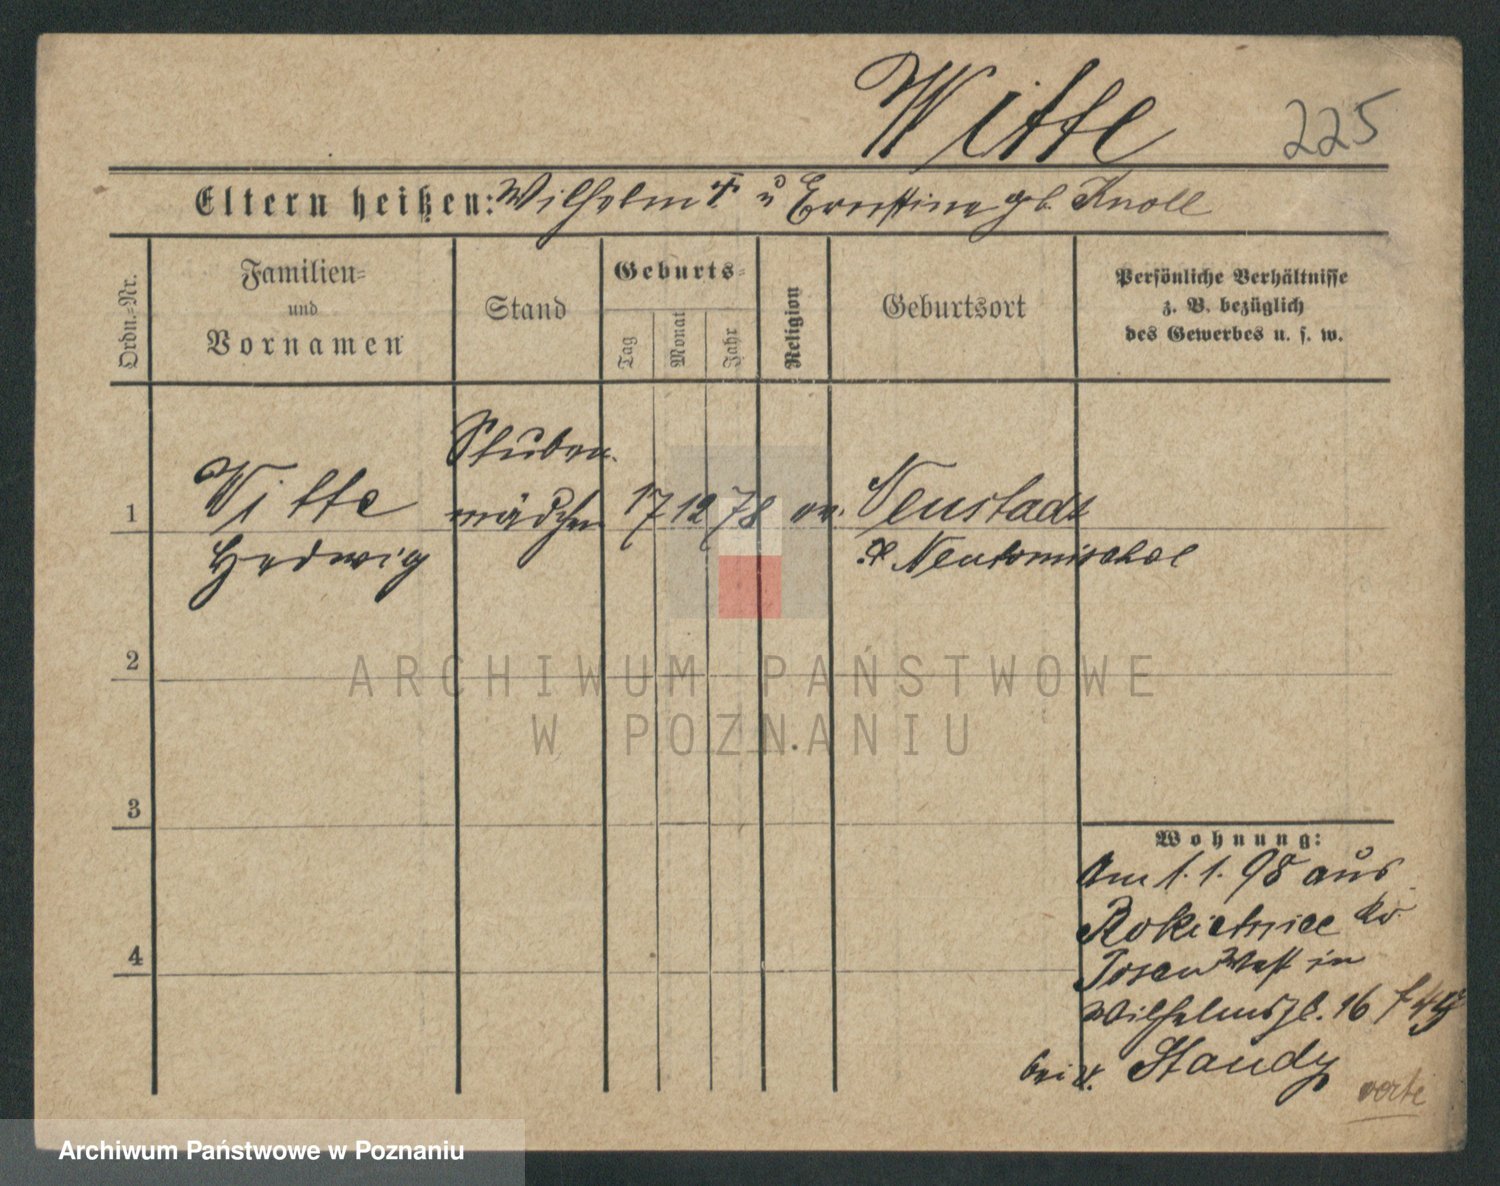 Witte 225
Eltern heißen: Wilhelm † u Ernstine gb. Knoll
Ordn.-Nr.
Familien-
und
Vornamen
Stand
Geburts-
Tag
Monat
Jahr
Religion
Geburtsort
Persönliche Verhältnisse
z. B. bezüglich
des Gewerbes u. s. w.
1
Witte
Hedwig
Stuben
mädchen
17 12 78
ev.
Neustadt
Neutomischel
2
3
4
Wohnung:
Am 1.1.98 aus
Rokietnice Kr
Posen West in
Wilhelmspl. 16
bei v. Staudy
verte
ARCHIWUM PAŃSTWOWE
W POZNANIU
Archiwum Państwowe w Poznaniu